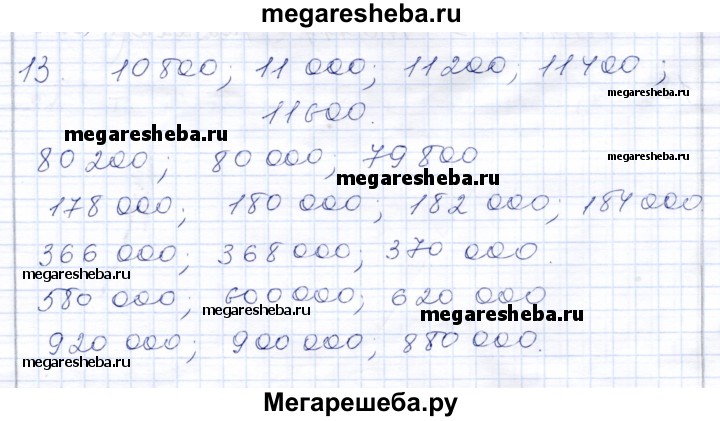 megaresheba.ru
13. 10 800; 11 000; 11 200; 11 400;
megaresheba.ru
11 600.
megaresheba.ru
80 200; 80 000; 79 800
megaresheba.ru
megaresheba.ru
178 000; 180 000; 182 000; 184 000.
366 000; 368 000; 370 000.
megaresheba.ru
580 000; 600 000; 620 000
megaresheba.ru
megaresheba.ru
920 000; 900 000; 880 000.
megaresheba.ru
Мегарешеба.ру